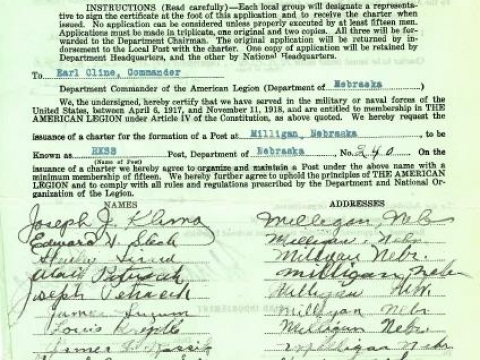 INSTRUCTIONS (Read carefully)—Each local group will designate a representa-
tive to sign the certificate at the foot of this application and to receive the charter when
issued. No application can be considered unless properly executed by at least fifteen men.
Applications must be made in triplicate, one original and two copies. All three will be for-
warded to the Department Chairman. The original application will be returned by in-
dorsement to the Local Post with the charter. One copy of application will be retained by
Department Headquarters, and the other by National Headquarters.
To Earl Cline, Commander
Department Commander of the American Legion (Department of Nebraska)
We, the undersigned, hereby certify that we have served in the military or naval forces of the
United States, between April 6, 1917, and November 11, 1918, and are entitled to membership in THE
AMERICAN LEGION under Article IV of the Constitution, as above quoted. We hereby request the
issuance of a charter for the formation of a Post at Milligan, Nebraska, to be
Known as Post, Department of Nebraska, No. 240 On the
(Name of Post)
issuance of a charter we hereby agree to organize and maintain a Post under the above name with a
minimum membership of fifteen. We hereby further agree to uphold the principles of THE AMERICAN
LEGION and to comply with all rules and regulations prescribed by the Department and National Or-
ganization of the Legion.
NAMES ADDRESSES
Joseph J. Klima Milligan, Nebr
Edward V Milligan, Nebr.
Milligan Nebr.
Milligan Nebr
Joseph Milligan
James Milligan Nebr
Louis Milligan Nebr.
James Milligan Nebr